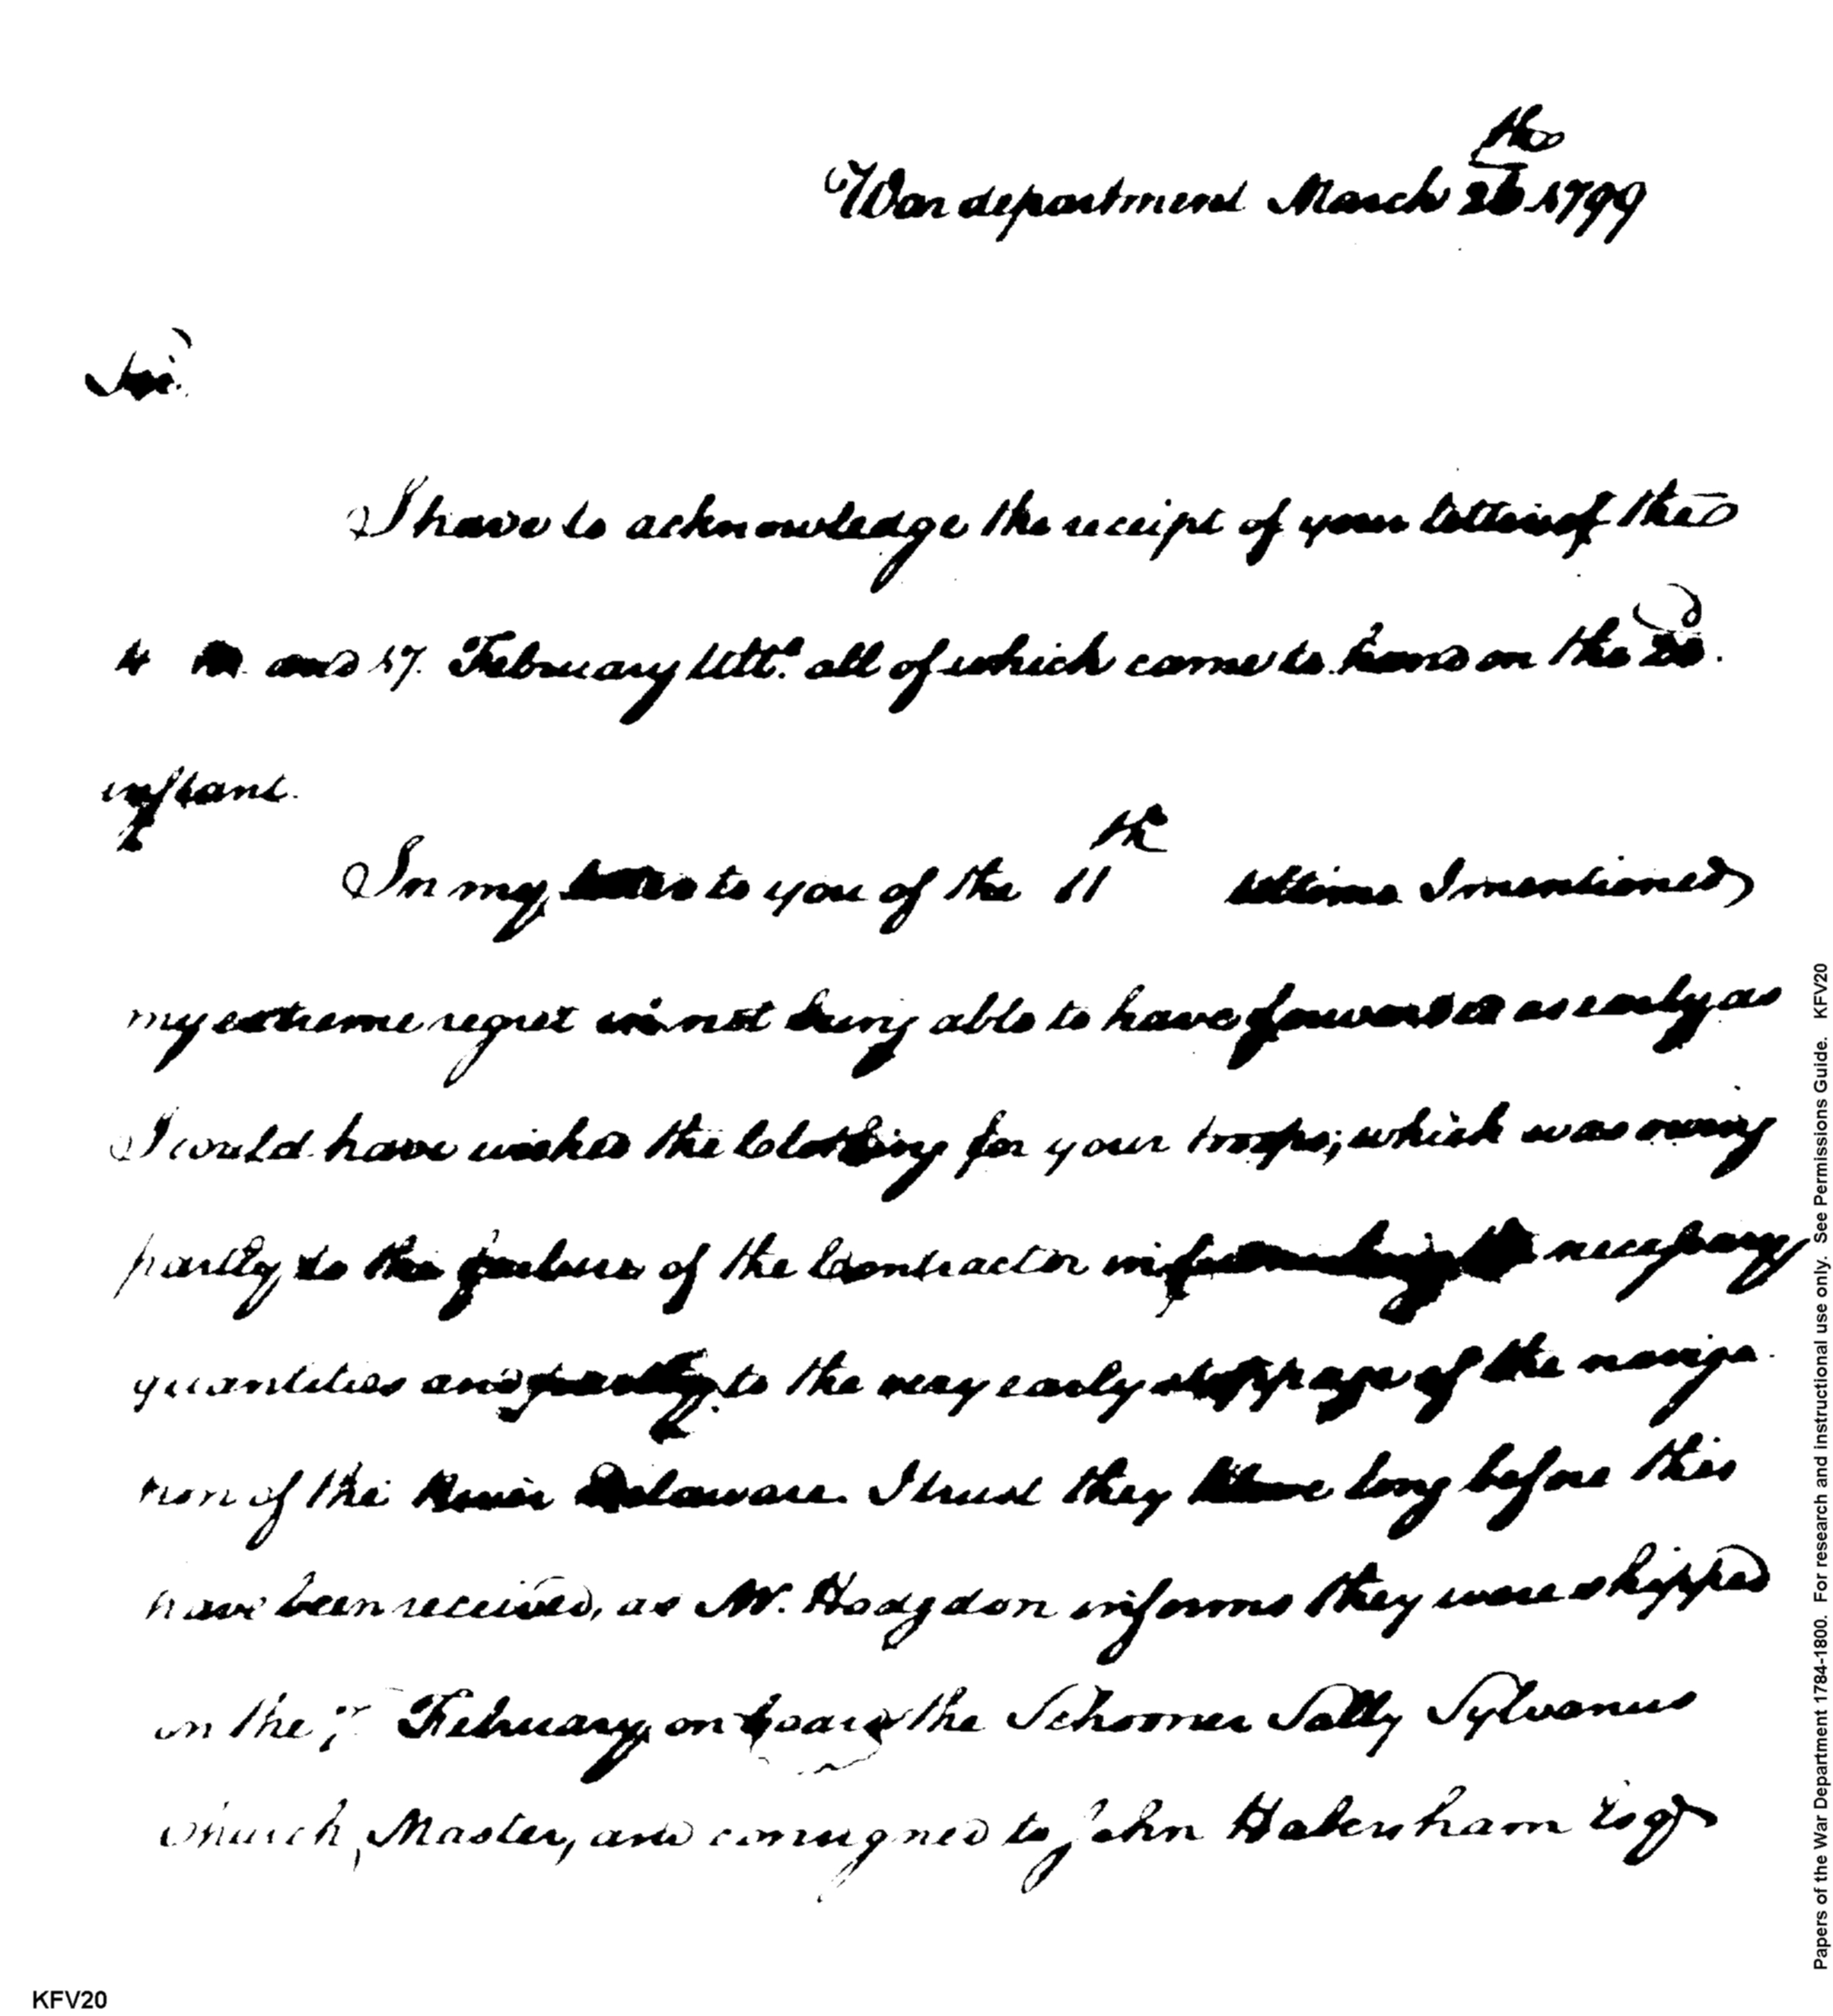 War department March 26th 1799
Sir.
I have to acknowledge the receipt of your letters of the
4 and 17. February Ulto. all of which came to hand on the
instant.
In my letter to you of the 11th Ultimo I mentioned
my extreme regret in not being able to have forwarded as early as
I could have wished the Clothing for your troops; which was owing
partly to the failure of the Contractor in furnishing the necessary
quantities and partly to the very early stoppage of the naviga-
tion of the River Delaware. I trust they have long before this
have been received, as Mr. Hodgdon informs they were shipped
on the 7 February on board the Schooner Sally Sylvanus
Church, Master, and consigned to John Habersham Esqr
Papers of the War Department 1784-1800. For research and instructional use only. See Permissions Guide. KFV20
KFV20